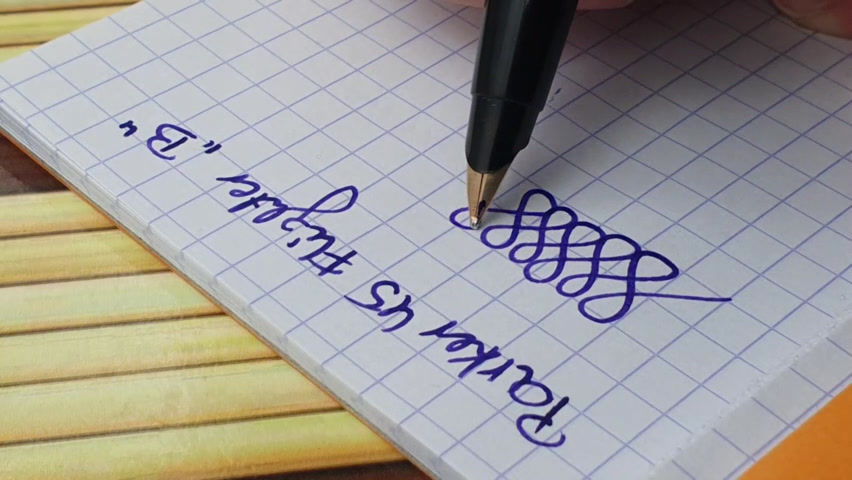 Parker 45 Flighter „B“